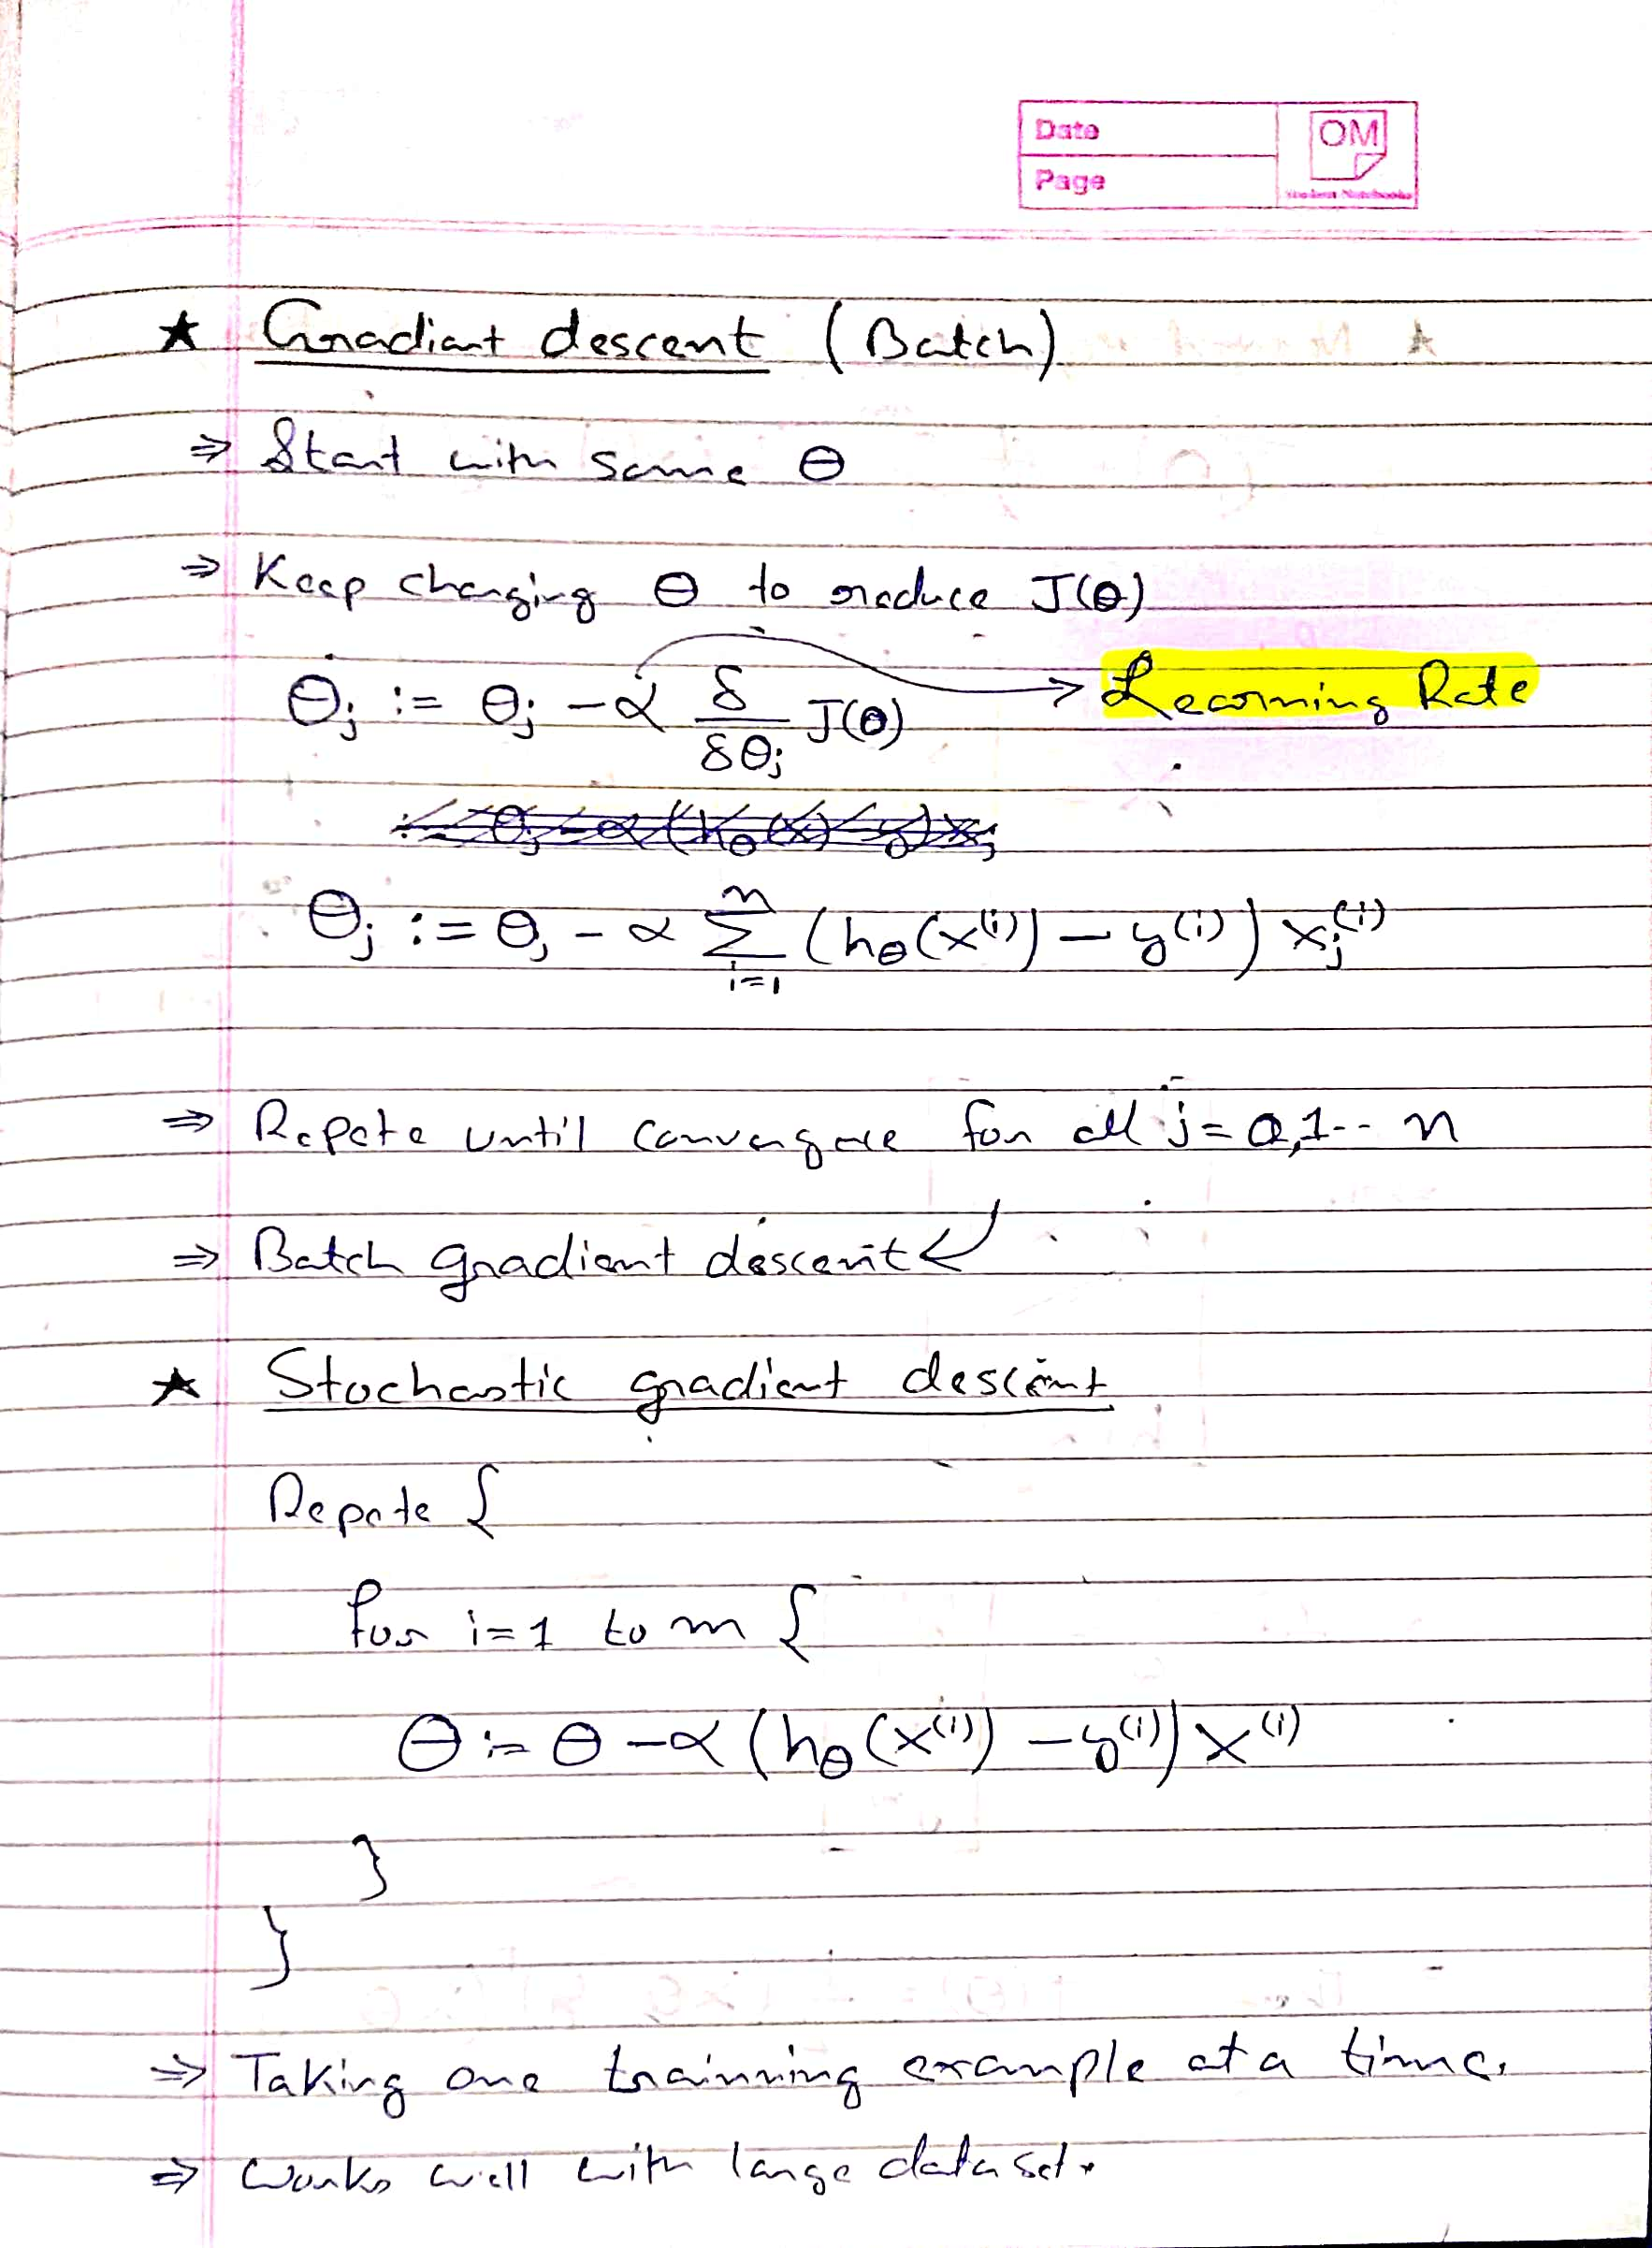 Date
Page
OM
★ Gradiant descent (Batch)
⇒ Start with some θ
⇒ Keep changing θ to reduce J(θ)
θj := θj - α δ/δθj J(θ) → Learning Rate
:= θj - α (hθ(x) - y) xj
θj := θj - α Σ_{i=1}^{m} (hθ(x^(i)) - y^(i)) xj^(i)
⇒ Repete until convergere for all j = 0,1-- n
⇒ Batch gradient descent
★ Stochastic gradient descent
Repete {
for i=1 to m {
θ := θ - α (hθ(x^(i)) - y^(i)) x^(i)
}
}
⇒ Taking one trainning example at a time.
⇒ works well with large data set.